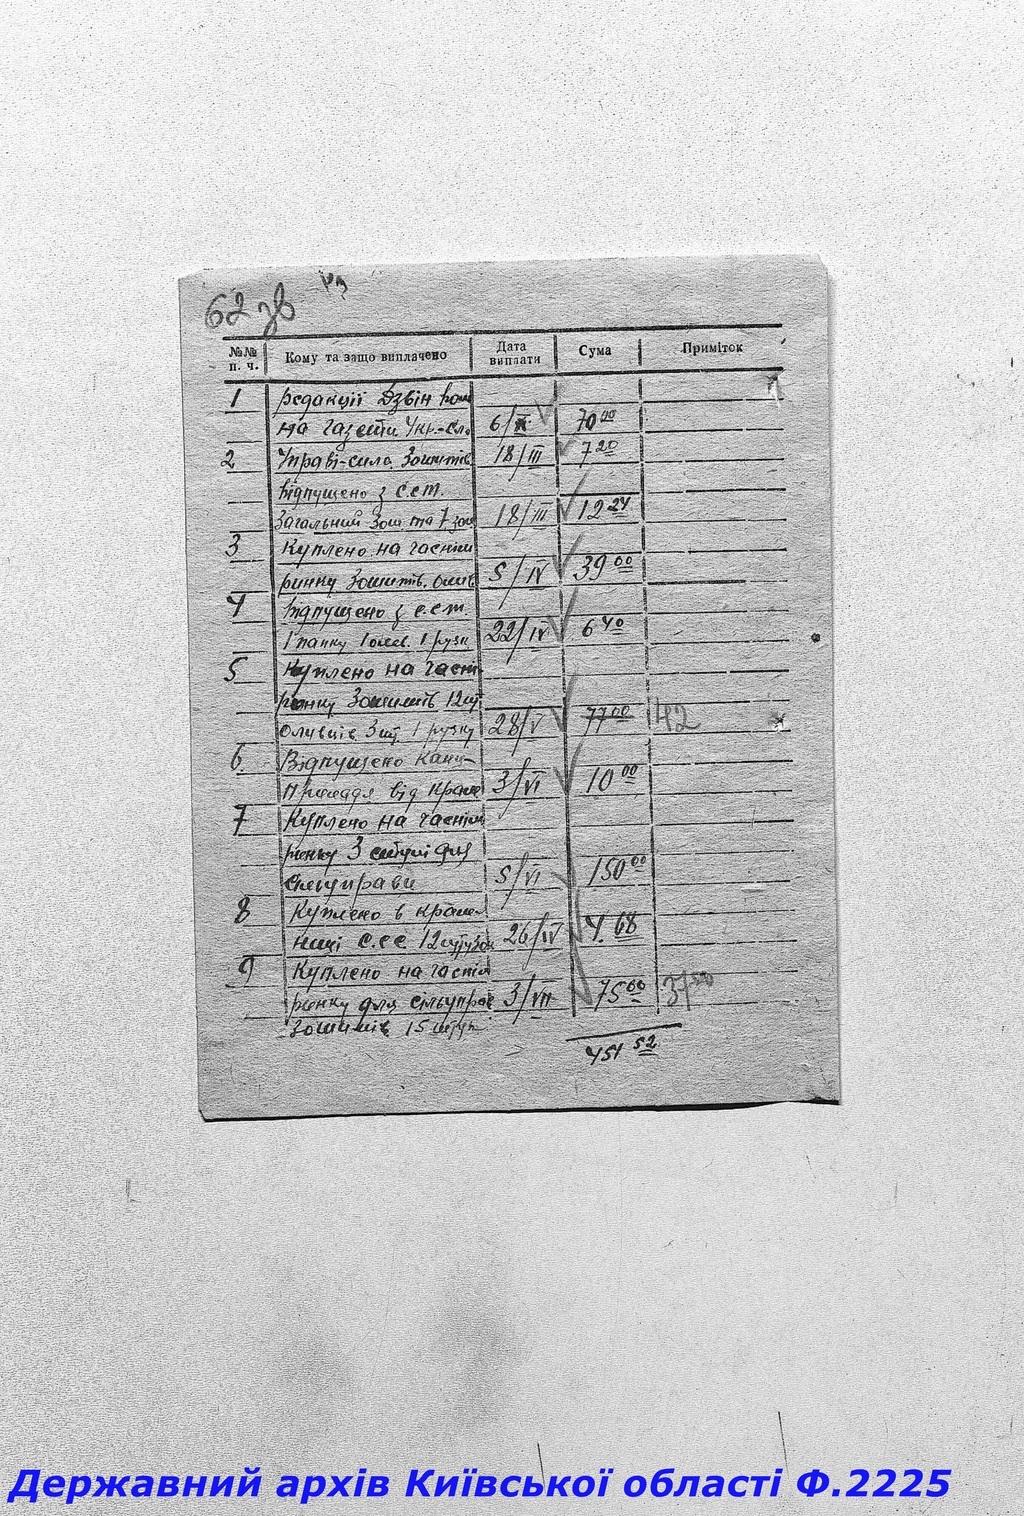 62 зв
№№ п. ч. Кому та защо виплачено Дата виплати Сума Приміток
1 редакції Дзвін
на газети Укр.-сл. 6/ 70 00
2 Управі-села Зошитів 18/III 7 20
відпущено з с.с.т.
Загальний Зош. та 7 зош 18/III 12 24
3 Куплено на часнім
ринку Зошитів. олив 5/IV 39 00
4 Відпущено з с.с.т.
1 папку 1 олив. 1 рузк 22/IV 6 40
5 Куплено на часн
ринку Зошитів 12 шт
оливців 3 шт 1 ручку 28/V 77 00 42
6. Відпущено кан-
приладя від крам 3/VI 10 00
7 Куплено на часнім
ринку 3 для
сільуправи 5/VI 150 00
8 Куплено в крам-
ниці с.с.с 12 26/IV 4.68
9 Куплено на часнім
ринку для сільуправ 3/VII 75 00 37 50
Зошитів 15 штук
451 52
Державний архів Київської області Ф.2225